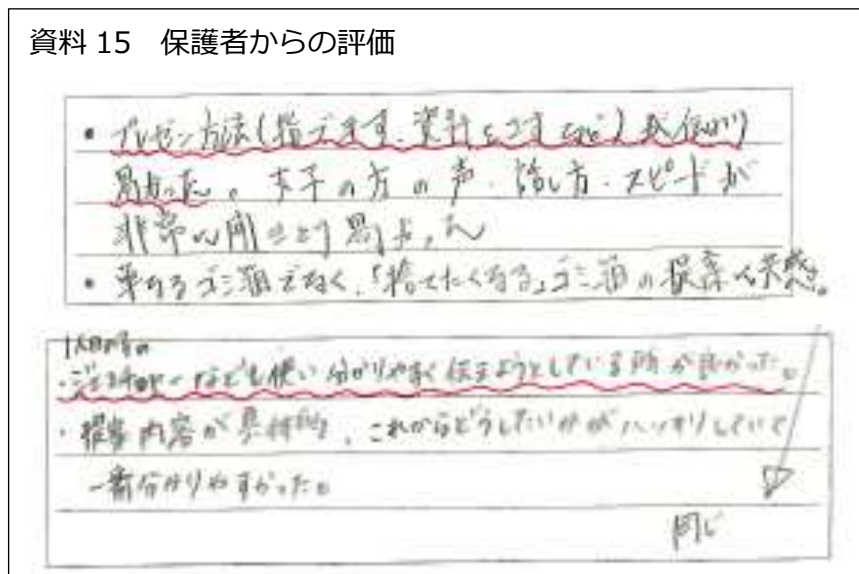 資料 15　保護者からの評価
・プレゼン方法(指でさす、資料をさすなど)が伝わり
易かった。女子の方の声・話し方・スピードが
非常に聞きとり易かった
・単なるゴミ箱でなく、「捨てたくなる」ゴミ箱の提案に共感。
1人目の男の
・ジェスチャーなども使い分かりやすく伝えようとしている所が良かった。
・提案内容が具体的、これからどうしたいかがハッキリしていて
一番分かりやすかった。
同じ